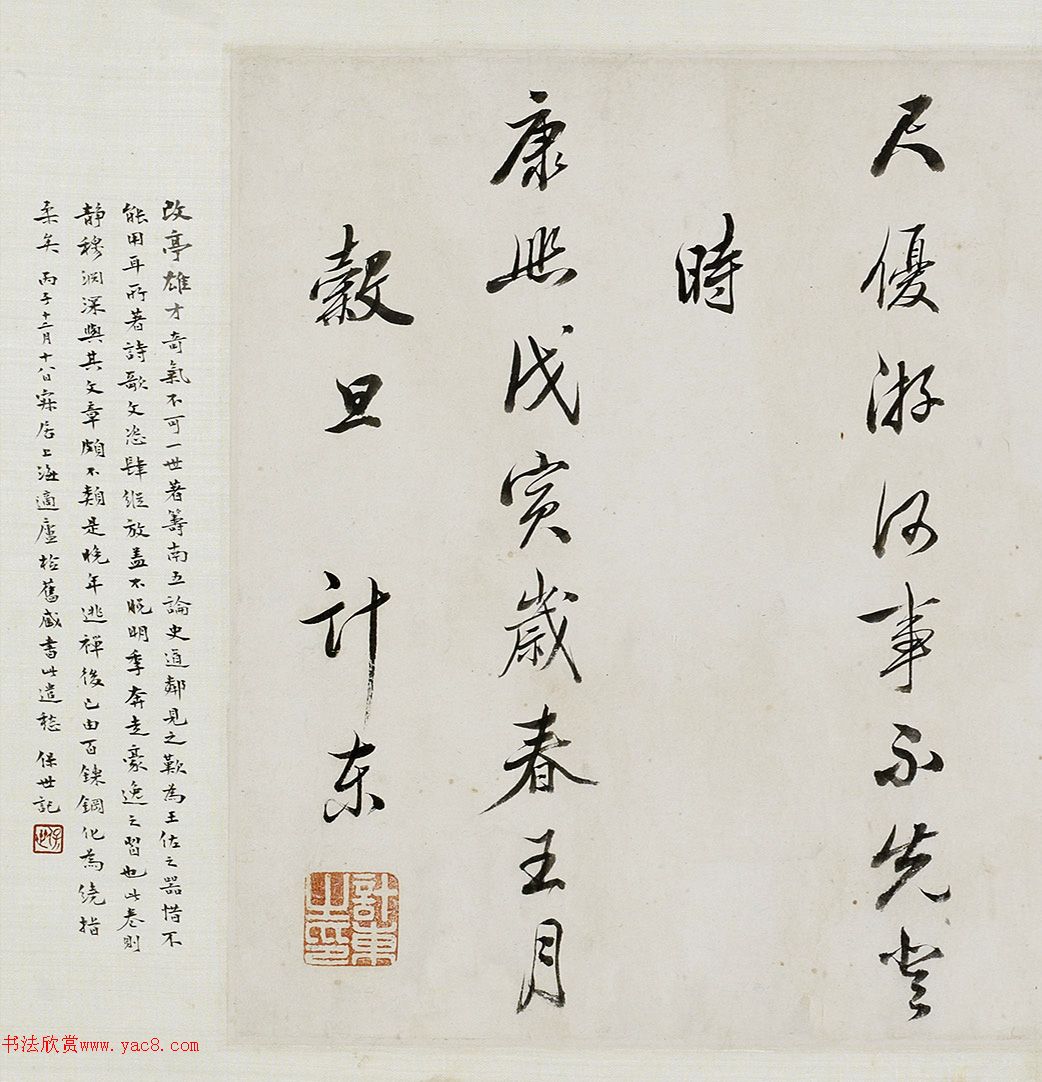 尺優游何事不先登
時
康熙戊寅歲春王月
穀旦 計東
計東之印
改亭雄才奇氣不可一世著籌南五論史道鄰見之歎為王佐之器惜不
能用耳所著詩歌文恣肆縱放蓋不脫明季奔走豪逸之習也此卷則
靜穆淵深與其文章頗不類是晚年逃禪後已由百鍊鋼化為繞指
柔矣 丙子十二月十八日寐居上海適廬檢舊藏書此遣愁 保世記
书法欣赏www.yac8.com